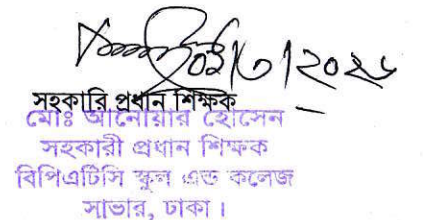 সহকারি প্রধান শিক্ষক
মোঃ আনোয়ার হোসেন
সহকারী প্রধান শিক্ষক
বিপিএটিসি স্কুল এন্ড কলেজ
সাভার, ঢাকা।